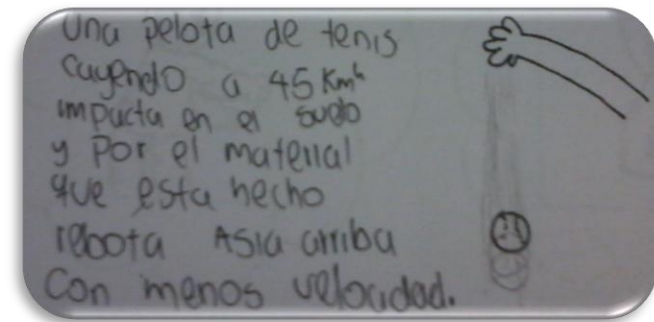 Una pelota de tenis
cayendo a 45 Kmh
impacta en el suelo
y por el material
que esta hecho
rebota Asia arriba
con menos velocidad.